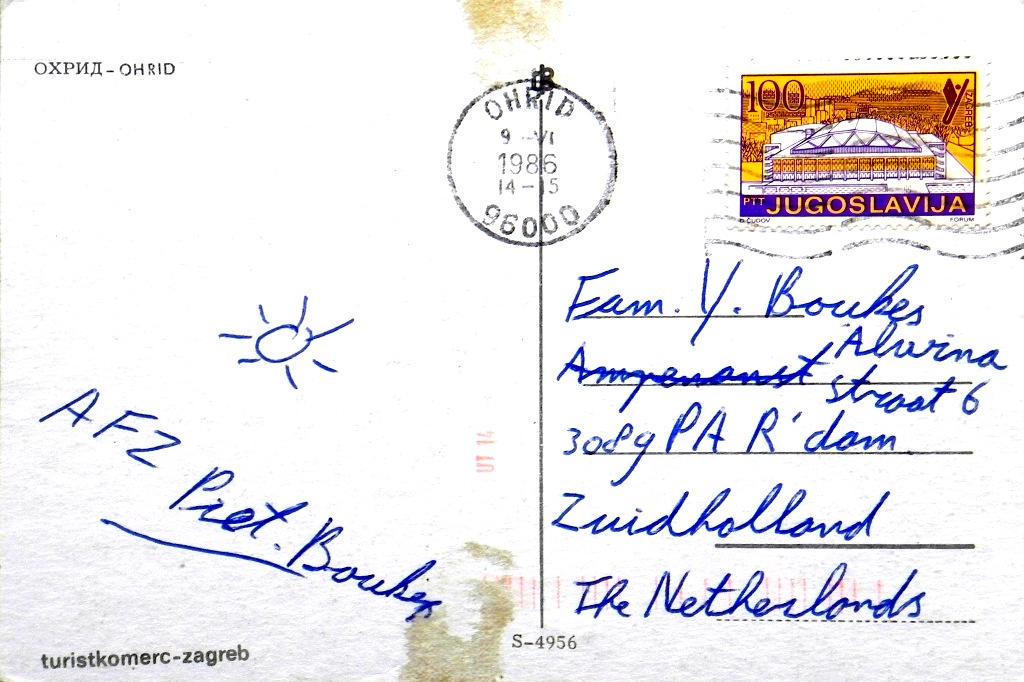 ОХРИД – OHRID
OHRID
9 - VI
1986
14 - 15
96000
100
ZAGREB
PTT JUGOSLAVIJA
FORUM
Fam. Y. Boukes
Alvirna
straat 6
3089 PA R'dam
Zuidholland
The Netherlands
AFZ
Piet. Boukes
UT 14
S-4956
turistkomerc-zagreb